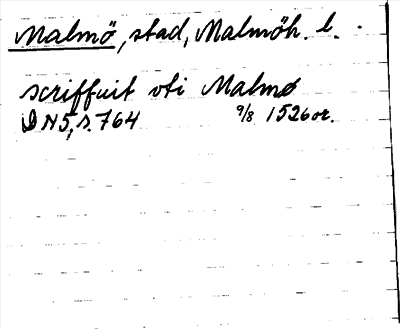 Malmö, stad, Malmöh. l.
scriffuit vti Malmø
DN5, s. 764 9/8 1526 or.